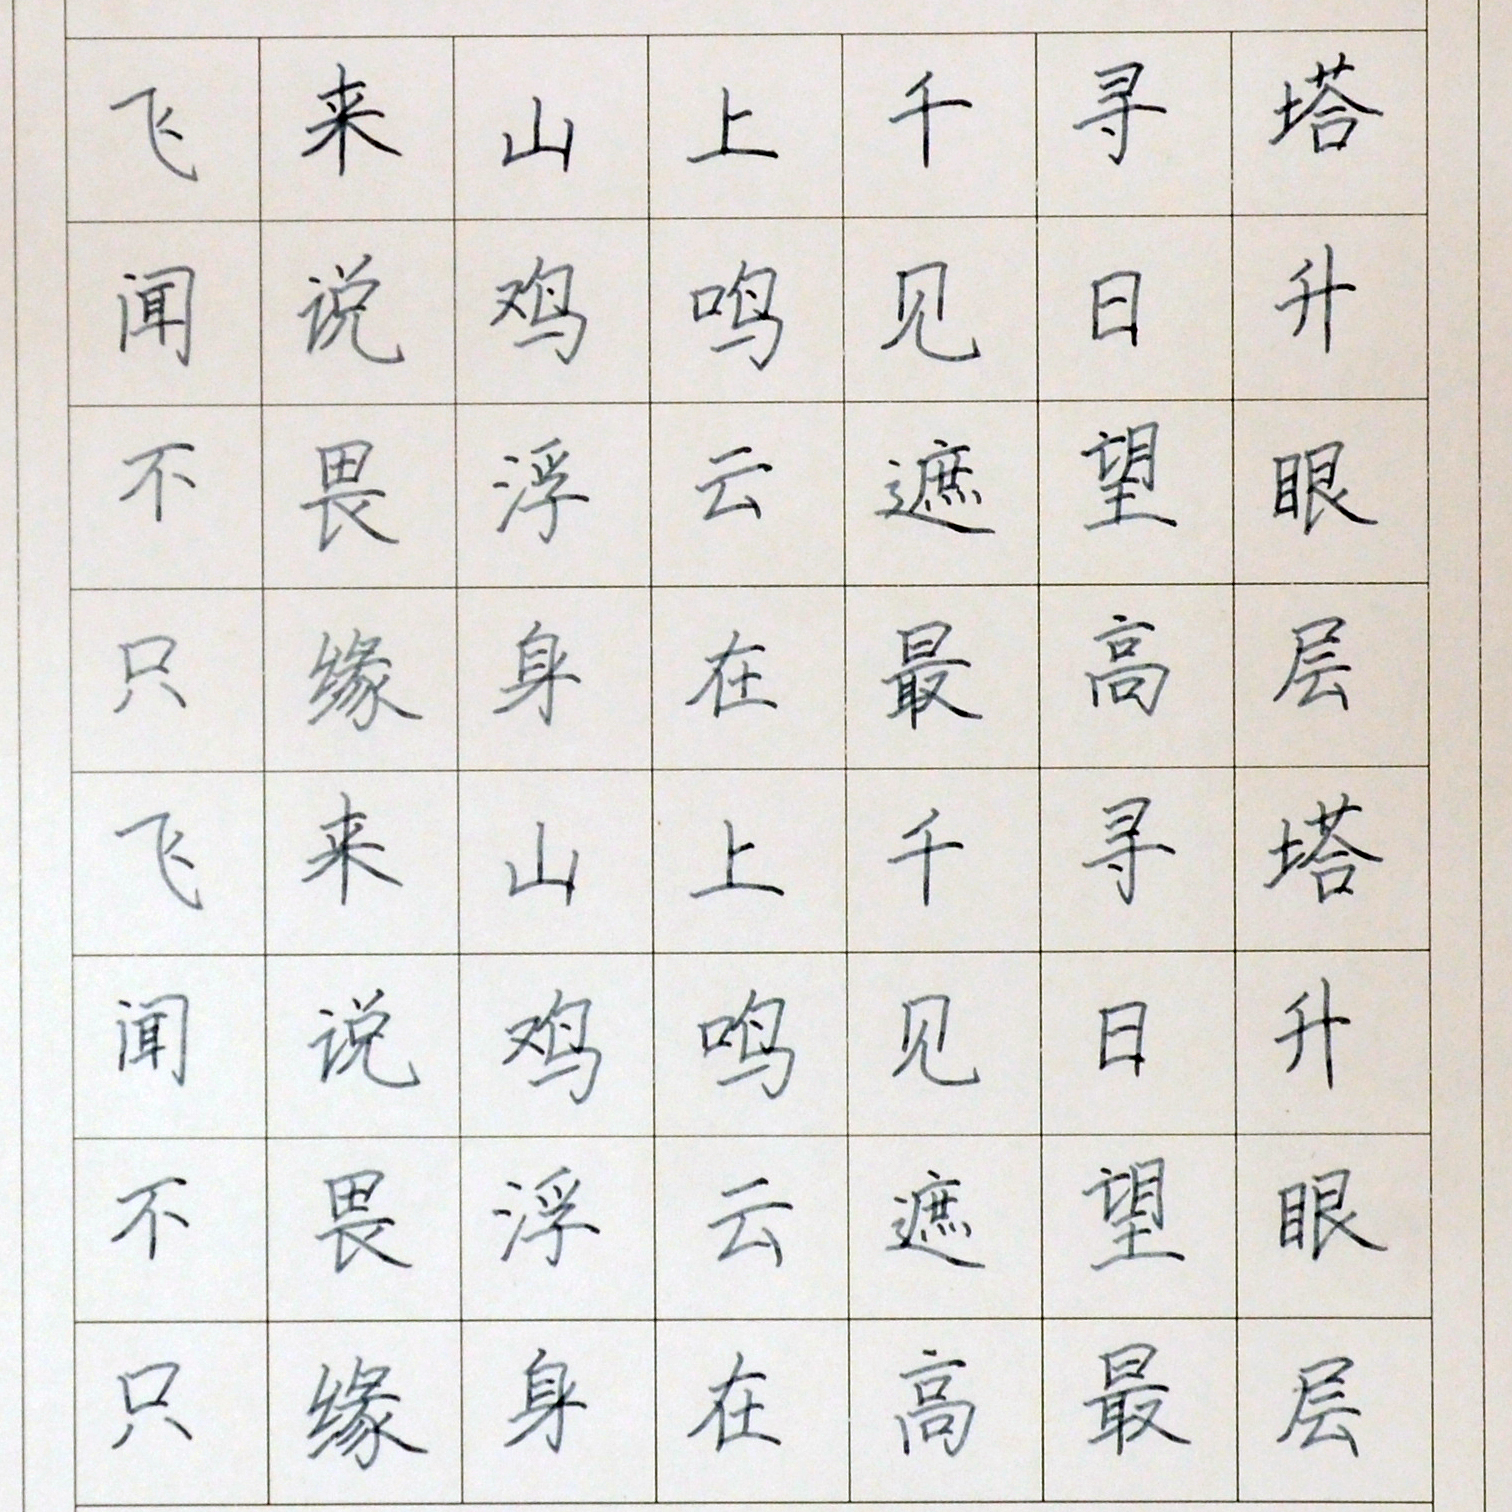 飞来山上千寻塔
闻说鸡鸣见日升
不畏浮云遮望眼
只缘身在最高层
飞来山上千寻塔
闻说鸡鸣见日升
不畏浮云遮望眼
只缘身在高最层